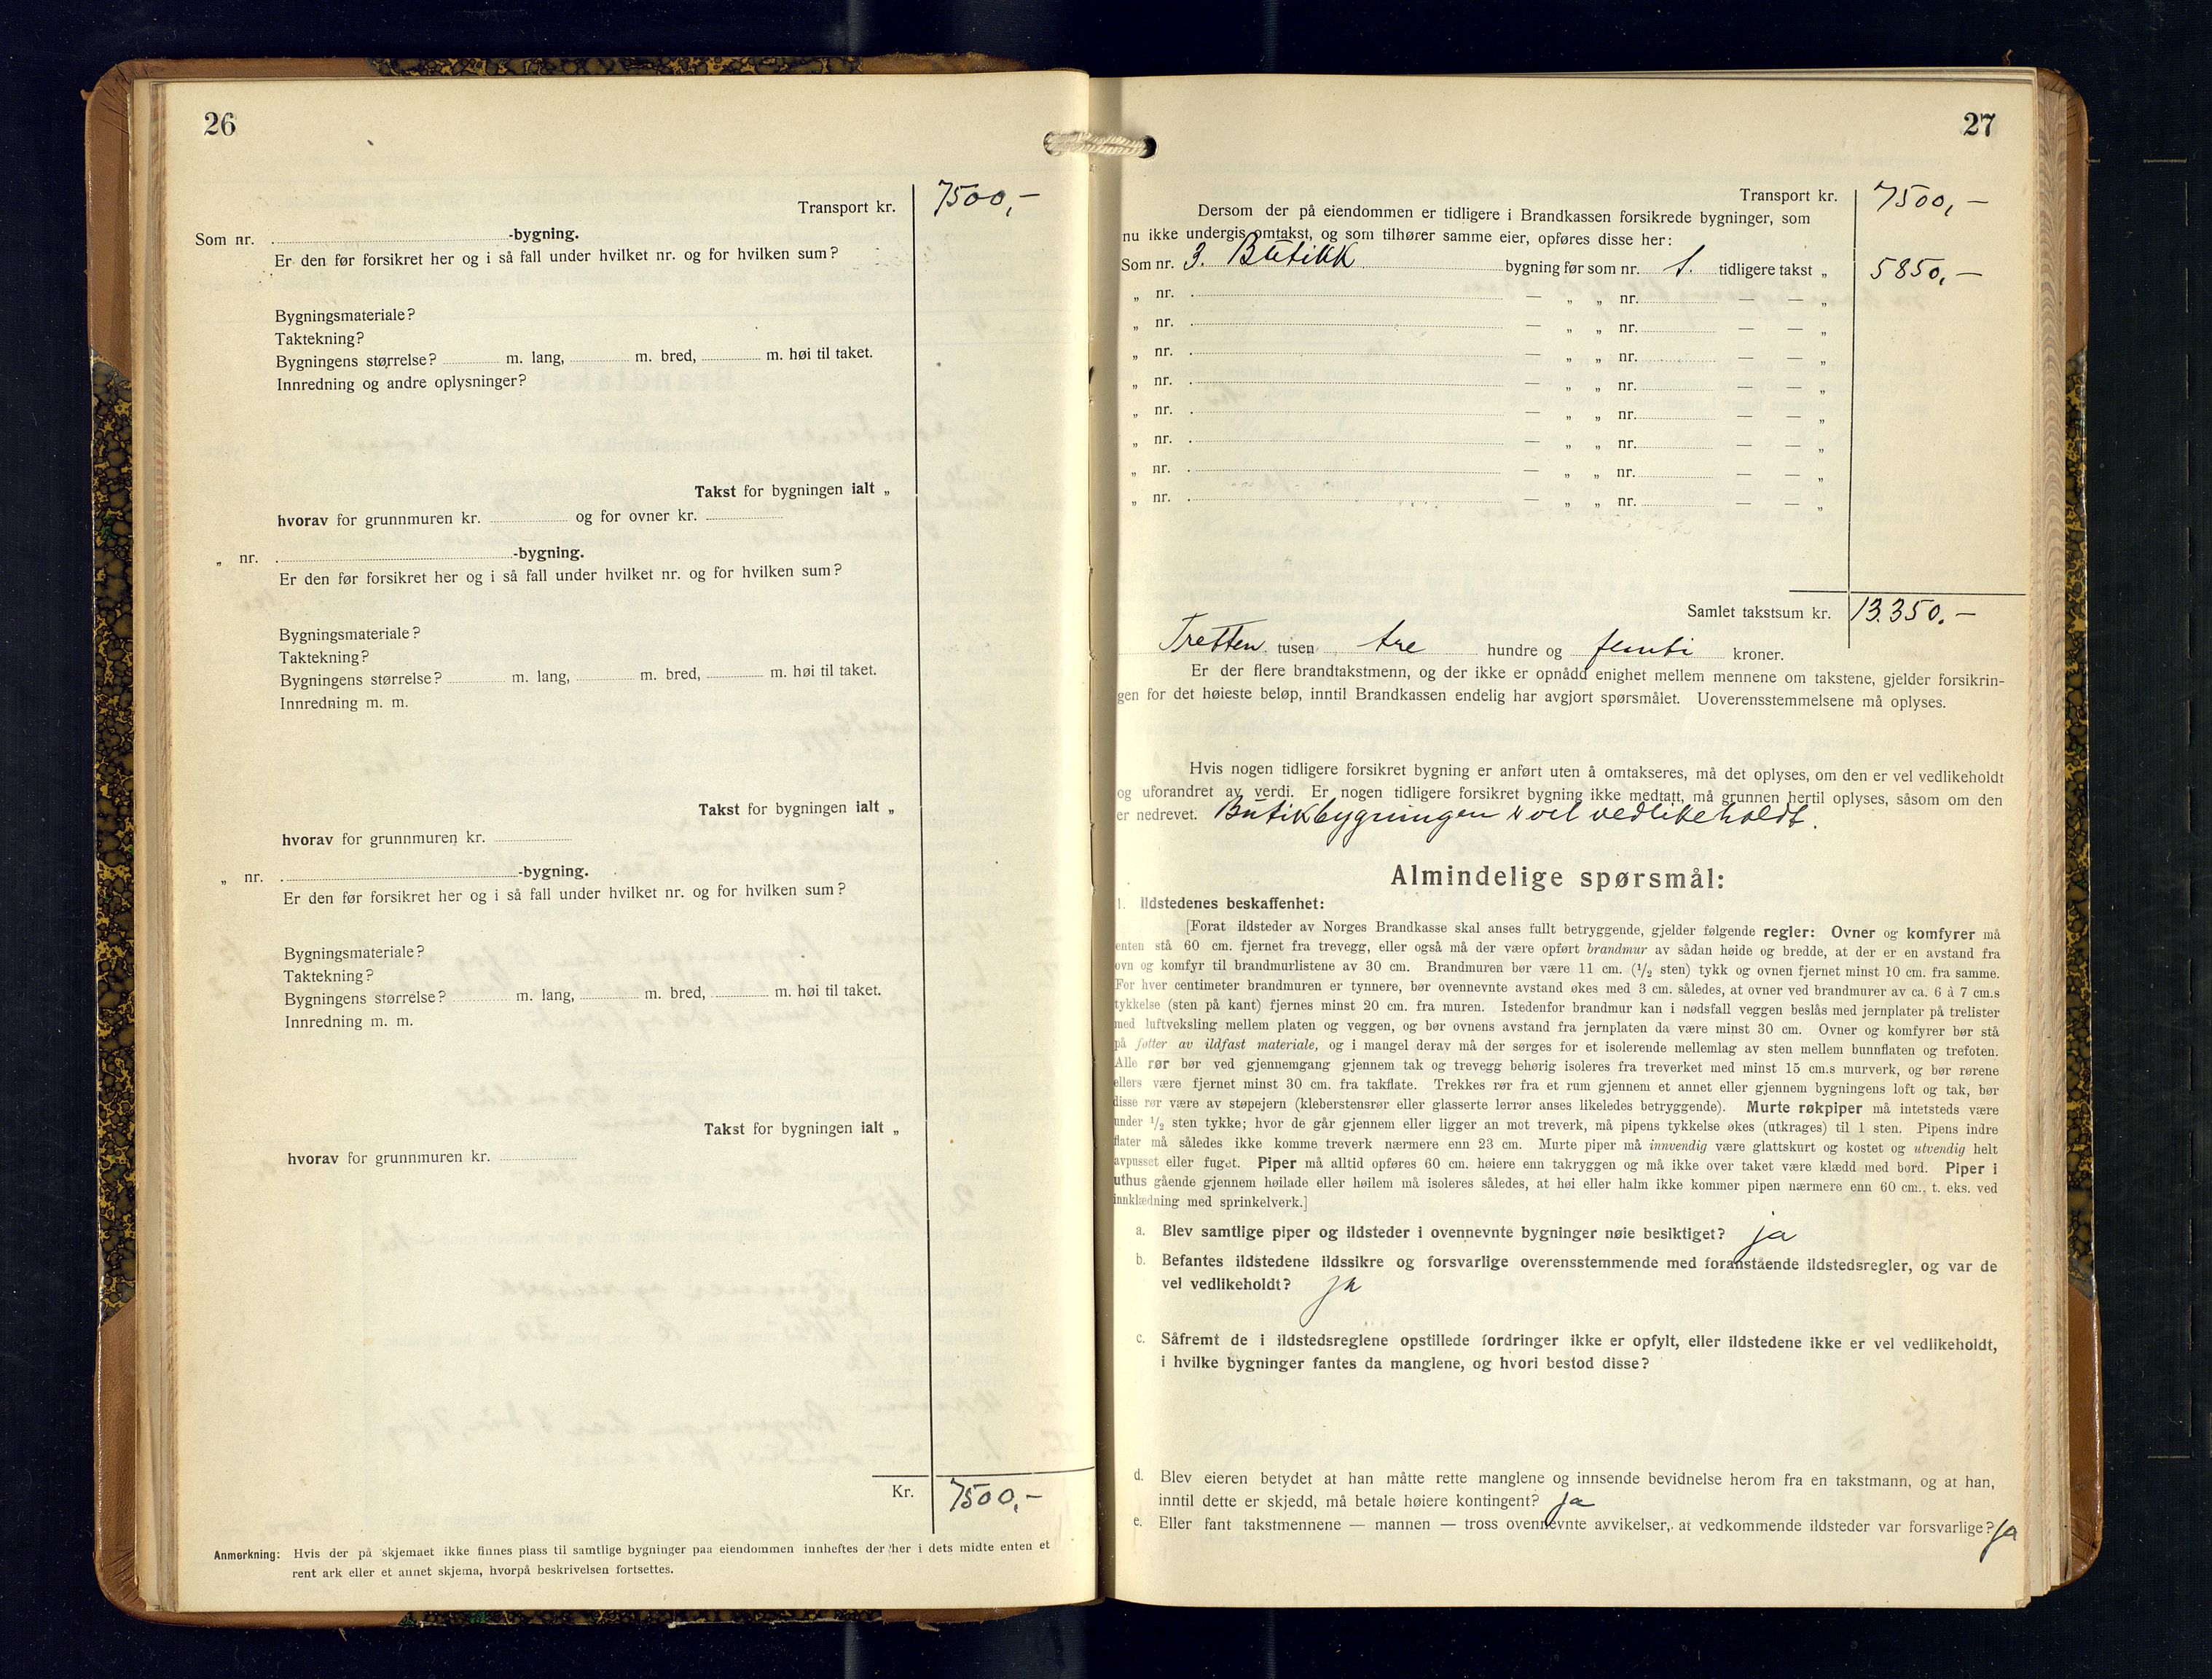 26
Transport kr. 7500,-
Som nr. -bygning.
Er den før forsikret her og i så fall under hvilket nr. og for hvilken sum?
Bygningsmateriale?
Taktekning?
Bygningens størrelse? m. lang, m. bred, m. høi til taket.
Innredning og andre oplysninger?
Takst for bygningen ialt „
hvorav for grunnmuren kr. og for ovner kr.
„ nr. -bygning.
Er den før forsikret her og i så fall under hvilket nr. og for hvilken sum?
Bygningsmateriale?
Taktekning?
Bygningens størrelse? m. lang, m. bred, m. høi til taket.
Innredning m. m.
Takst for bygningen ialt „
hvorav for grunnmuren kr.
„ nr. -bygning.
Er den før forsikret her og i så fall under hvilket nr. og for hvilken sum?
Bygningsmateriale?
Taktekning?
Bygningens størrelse? m. lang, m. bred, m. høi til taket.
Innredning m. m.
Takst for bygningen ialt „
hvorav for grunnmuren kr.
Kr. 7500,-
Anmerkning: Hvis der på skjemaet ikke finnes plass til samtlige bygninger paa eiendommen innheftes der her i dets midte enten et
rent ark eller et annet skjema, hvorpå beskrivelsen fortsettes.
27
Transport kr. 7500,-
Dersom der på eiendommen er tidligere i Brandkassen forsikrede bygninger, som
nu ikke undergis omtakst, og som tilhører samme eier, opføres disse her:
Som nr. 3. Butikk bygning før som nr. 1. tidligere takst „ 5850,-
„ nr. — „ „ nr. — — „
„ nr. — „ „ nr. — — „
„ nr. — „ „ nr. — — „
„ nr. — „ „ nr. — — „
„ nr. — „ „ nr. — — „
„ nr. — „ „ nr. — — „
„ nr. — „ „ nr. — — „
„ nr. — „ „ nr. — — „
Samlet takstsum kr. 13.350.-
Tretten tusen tre hundre og femti kroner.
Er der flere brandtakstmenn, og der ikke er opnådd enighet mellem mennene om takstene, gjelder forsikrin-
gen for det høieste beløp, inntil Brandkassen endelig har avgjort spørsmålet. Uoverensstemmelsene må oplyses.
Hvis nogen tidligere forsikret bygning er anført uten å omtakseres, må det oplyses, om den er vel vedlikeholdt
og uforandret av verdi. Er nogen tidligere forsikret bygning ikke medtatt, må grunnen hertil oplyses, såsom om den
er nedrevet. Butikbygningen er vel vedlikeholdt.
Almindelige spørsmål:
1. Ildstedenes beskaffenhet:
[Forat ildsteder av Norges Brandkasse skal anses fullt betryggende, gjelder følgende regler: Ovner og komfyrer må
enten stå 60 cm. fjernet fra trevegg, eller også må der være opført brandmur av sådan høide og bredde, at der er en avstand fra
ovn og komfyr til brandmurlistene av 30 cm. Brandmuren bør være 11 cm. (1/2 sten) tykk og ovnen fjernet minst 10 cm. fra samme.
For hver centimeter brandmuren er tynnere, bør ovennevnte avstand økes med 3 cm. således, at ovner ved brandmurer av ca. 6 à 7 cm.s
tykkelse (sten på kant) fjernes minst 20 cm. fra muren. Istedenfor brandmur kan i nødsfall veggen beslås med jernplater på trelister
med luftveksling mellem platen og veggen, og bør ovnens avstand fra jernplaten da være minst 30 cm. Ovner og komfyrer bør stå
på føtter av ildfast materiale, og i mangel derav må der sørges for et isolerende mellemlag av sten mellem bunnflaten og trefoten.
Alle rør bør ved gjennemgang gjennem tak og trevegg behørig isoleres fra treverket med minst 15 cm.s murverk, og bør rørene
ellers være fjernet minst 30 cm. fra takflate. Trekkes rør fra et rum gjennem et annet eller gjennem bygningens loft og tak, bør
disse rør være av støpejern (kleberstensrør eller glasserte lerrør anses likeledes betryggende). Murte røkpiper må intetsteds være
under 1/2 sten tykke; hvor de går gjennem eller ligger an mot treverk, må pipens tykkelse økes (utkrages) til 1 sten. Pipens indre
flater må således ikke komme treverk nærmere enn 23 cm. Murte piper må innvendig være glattskurt og kostet og utvendig helt
avpusset eller fuget. Piper må alltid opføres 60 cm. høiere enn takryggen og må ikke over taket være klædd med bord. Piper i
uthus gående gjennem høilade eller høilem må isoleres således, at høi eller halm ikke kommer pipen nærmere enn 60 cm., t. eks. ved
innklædning med sprinkelverk.]
a. Blev samtlige piper og ildsteder i ovennevnte bygninger nøie besiktiget? ja
b. Befantes ildstedene ildssikre og forsvarlige overensstemmende med foranstående ildstedsregler, og var de
vel vedlikeholdt? ja
c. Såfremt de i ildstedsreglene opstillede fordringer ikke er opfylt, eller ildstedene ikke er vel vedlikeholdt,
i hvilke bygninger fantes da manglene, og hvori bestod disse?
d. Blev eieren betydet at han måtte rette manglene og innsende bevidnelse herom fra en takstmann, og at han,
inntil dette er skjedd, må betale høiere kontingent? ja
e. Eller fant takstmennene — mannen — tross ovennevnte avvikelser, at vedkommende ildsteder var forsvarlige? ja